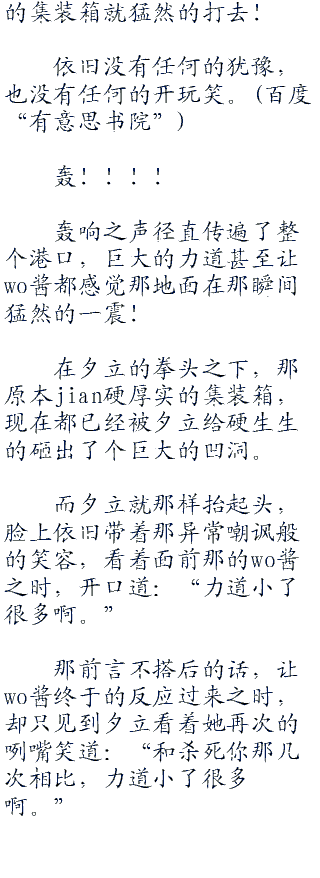 的集装箱就猛然的打去！
依旧没有任何的犹豫，
也没有任何的开玩笑。（百度
“有意思书院”）
轰！！！！
轰响之声径直传遍了整
个港口，巨大的力道甚至让
wo酱都感觉那地面在那瞬间
猛然的一震！
在夕立的拳头之下，那
原本jian硬厚实的集装箱，
现在都已经被夕立给硬生生
的砸出了个巨大的凹洞。
而夕立就那样抬起头，
脸上依旧带着那异常嘲讽般
的笑容，看着面前那的wo酱
之时，开口道：“力道小了
很多啊。”
那前言不搭后的话，让
wo酱终于的反应过来之时，
却只见到夕立看着她再次的
咧嘴笑道：“和杀死你那几
次相比，力道小了很多
啊。”